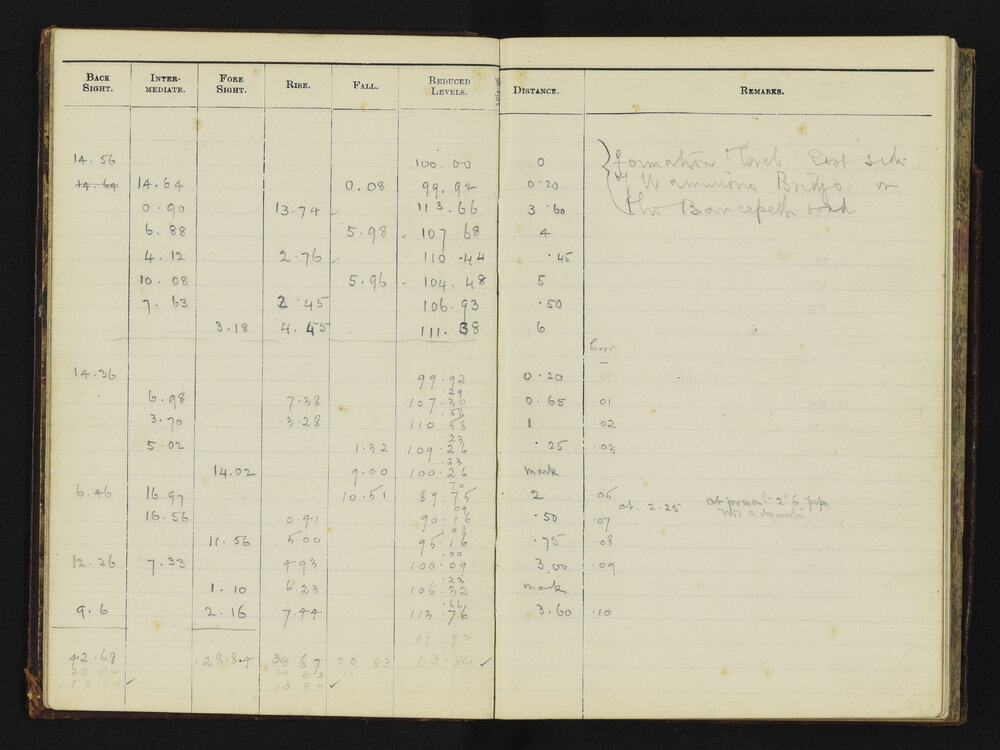 BACK SIGHT. INTER-MEDIATE. FORE SIGHT. RISE. FALL. REDUCED LEVELS. DISTANCE. REMARKS.
14.56 100.00 0 formation level East side
14.64 14.64 0.08 99.92 0.20 Bridge on
0.90 13.74 113.66 3.60 the Bancepeth road
6.88 5.98 107.68 4
4.12 2.76 110.44 .45
10.08 5.96 104.48 5
7.63 2.45 106.93 .50
3.18 4.45 111.38 6
Corr.
14.36 99.92 0.20 .01
.29
6.98 7.38 107.30 0.65 .01
.56
3.70 3.28 110.58 1 .02
.23
5.02 1.32 109.26 .25 .03
.23
14.02 9.00 100.26 mark
.70
6.46 16.97 10.51 89.75 2 .05 at 2.25 at present 2'6 pipe
.09
16.56 0.41 90.16 .50 .07 not adequate
.08
11.56 5.00 95.16 .75 .08
.00
12.26 7.33 4.93 100.09 3.00 .09
.23
1.10 6.23 106.32 mark
.66
9.6 2.16 7.44 113.76 3.60 .10
99.92
42.68 28.84 34.67 20.83 13.84 ✓
20 83
13 84 ✓ 13 84 ✓